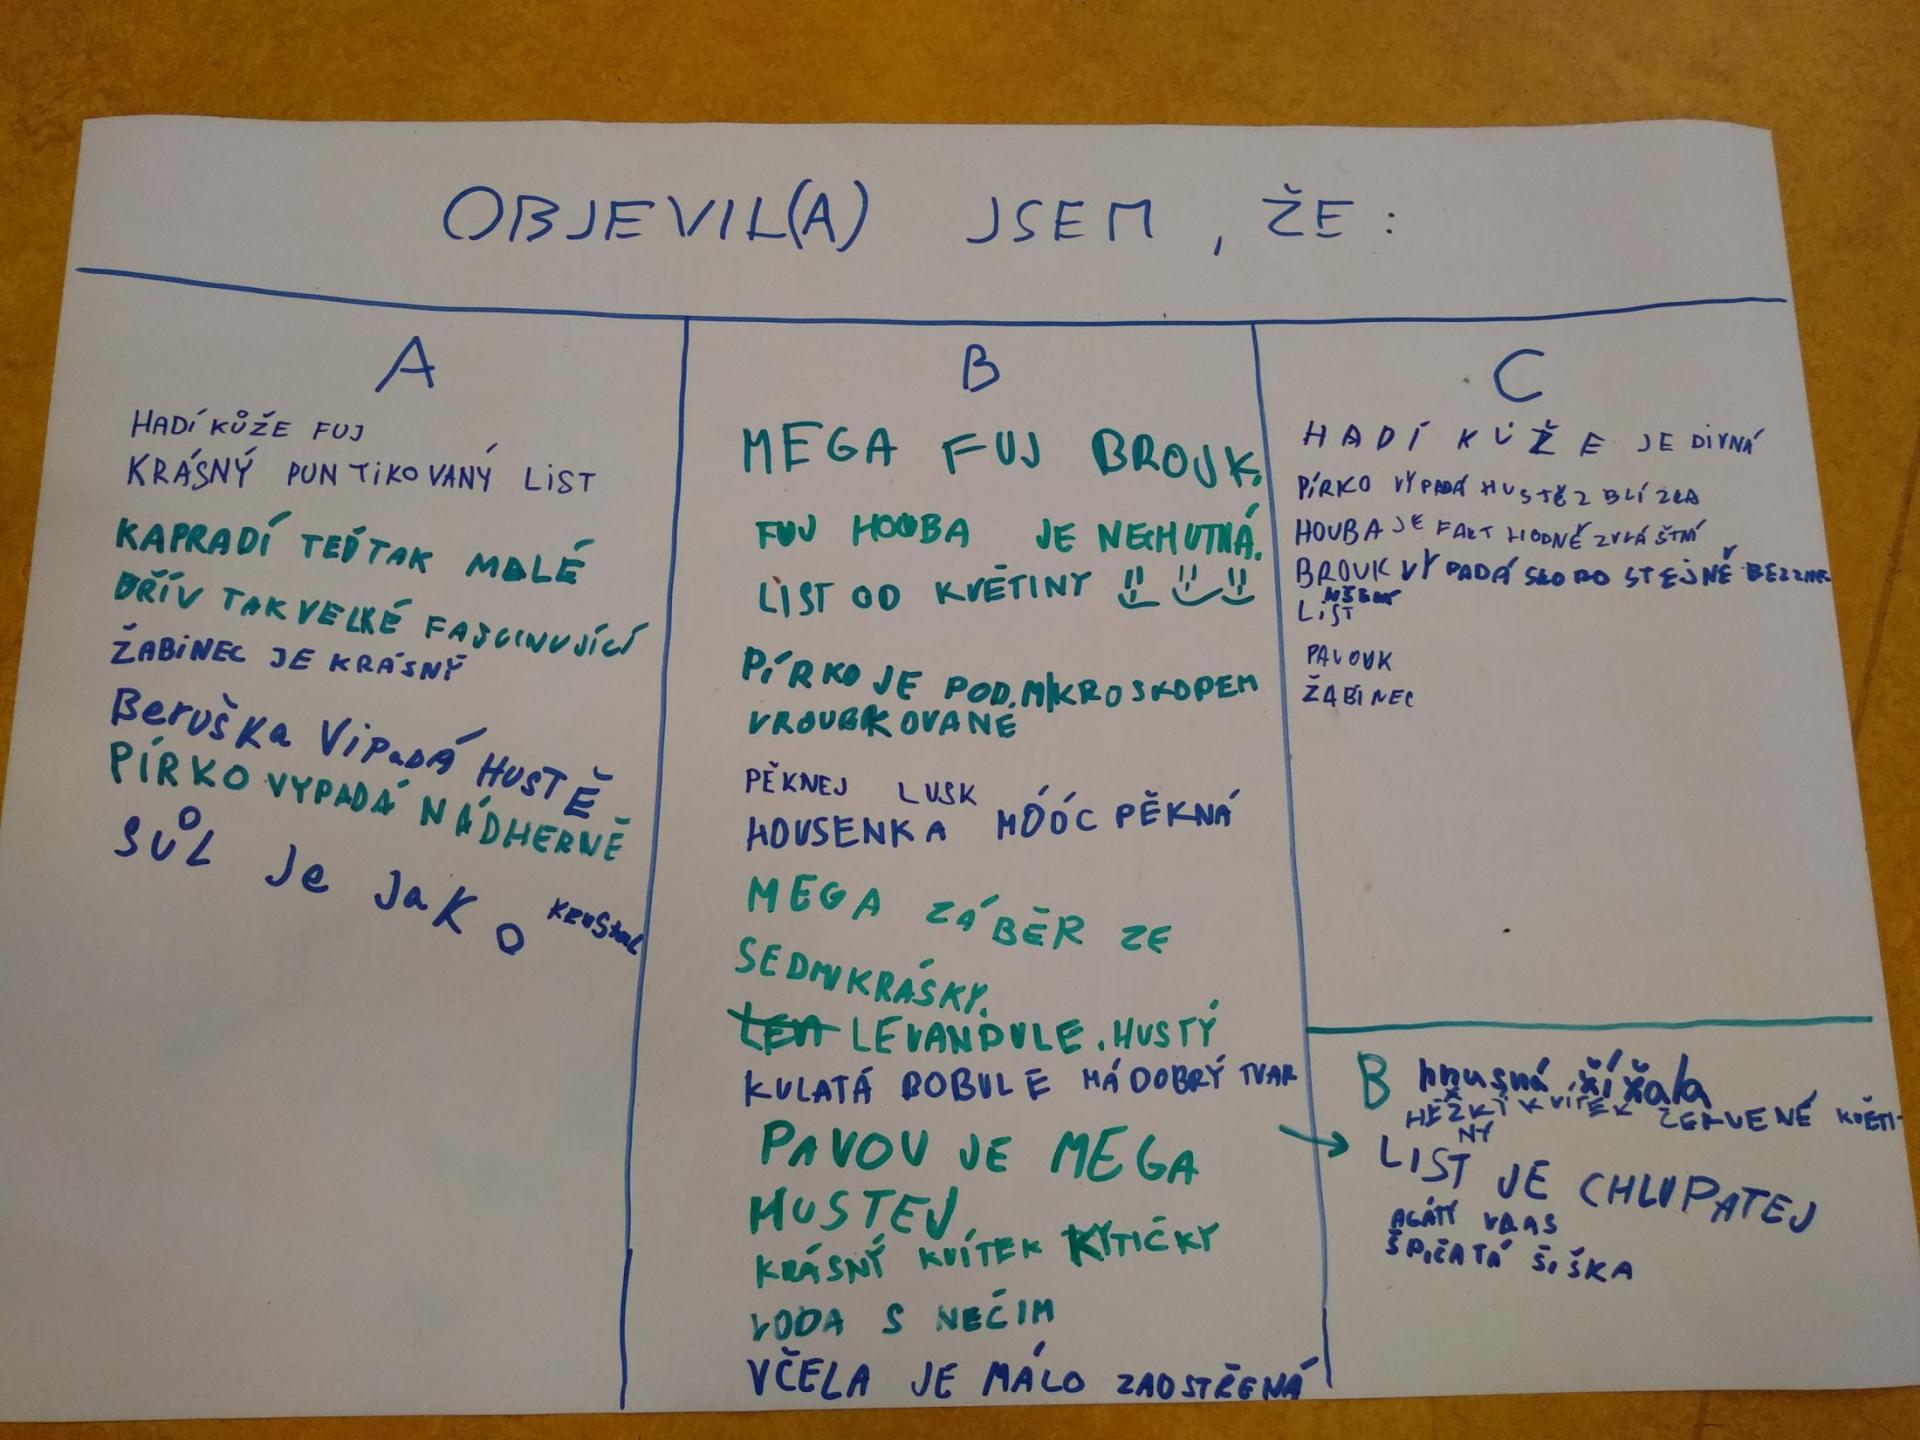 OBJEVIL(A) JSEM, ŽE:
A
HADÍ KŮŽE FUJ
KRÁSNÝ PUNTIKOVANÝ LIST
KAPRADÍ TEĎ TAK MALÉ
DŘÍV TAK VELKÉ FASCINUJÍCÍ
ŽABINEC JE KRÁSNÝ
Beruška Vipadá HUSTĚ
PÍRKO VYPADÁ NÁDHERNĚ
SŮL Je JaKO KRUSTAL
B
MEGA FUJ BROUK.
FUJ HOUBA JE NECHUTNÁ.
LIST OD KVĚTINY
PÍRKO JE POD MIKROSKOPEM
VROUBKOVANÉ
PĚKNEJ LUSK
HOUSENKA MÓÓC PĚKNÁ
MEGA ZÁBĚR ZE
SEDMIKRÁSKY.
LEVANDULE. HUSTÝ
KULATÁ BOBULE MÁ DOBRÝ TVAR
PAVOU JE MEGA
HUSTEJ
KRÁSNÝ KVÍTEK KYTIČKY
VODA S NEČIM
VČELA JE MÁLO ZAOSTŘENÁ
C
HADÍ KŮŽE JE DIVNÁ
PÍRKO VYPADÁ HUSTĚ Z BLÍZKA
HOUBA JE FAKT HODNĚ ZVLÁŠTNÍ
BROUK VYPADÁ SKORO STEJNĚ BEZ
LIST
PAVOUK
ŽABINEC
B hnusná žížala
HEŽKÍ KVÍTEK KVĚTI-
NY
LIST JE CHLUPATEJ
ŠPIČATÁ ŠIŠKA